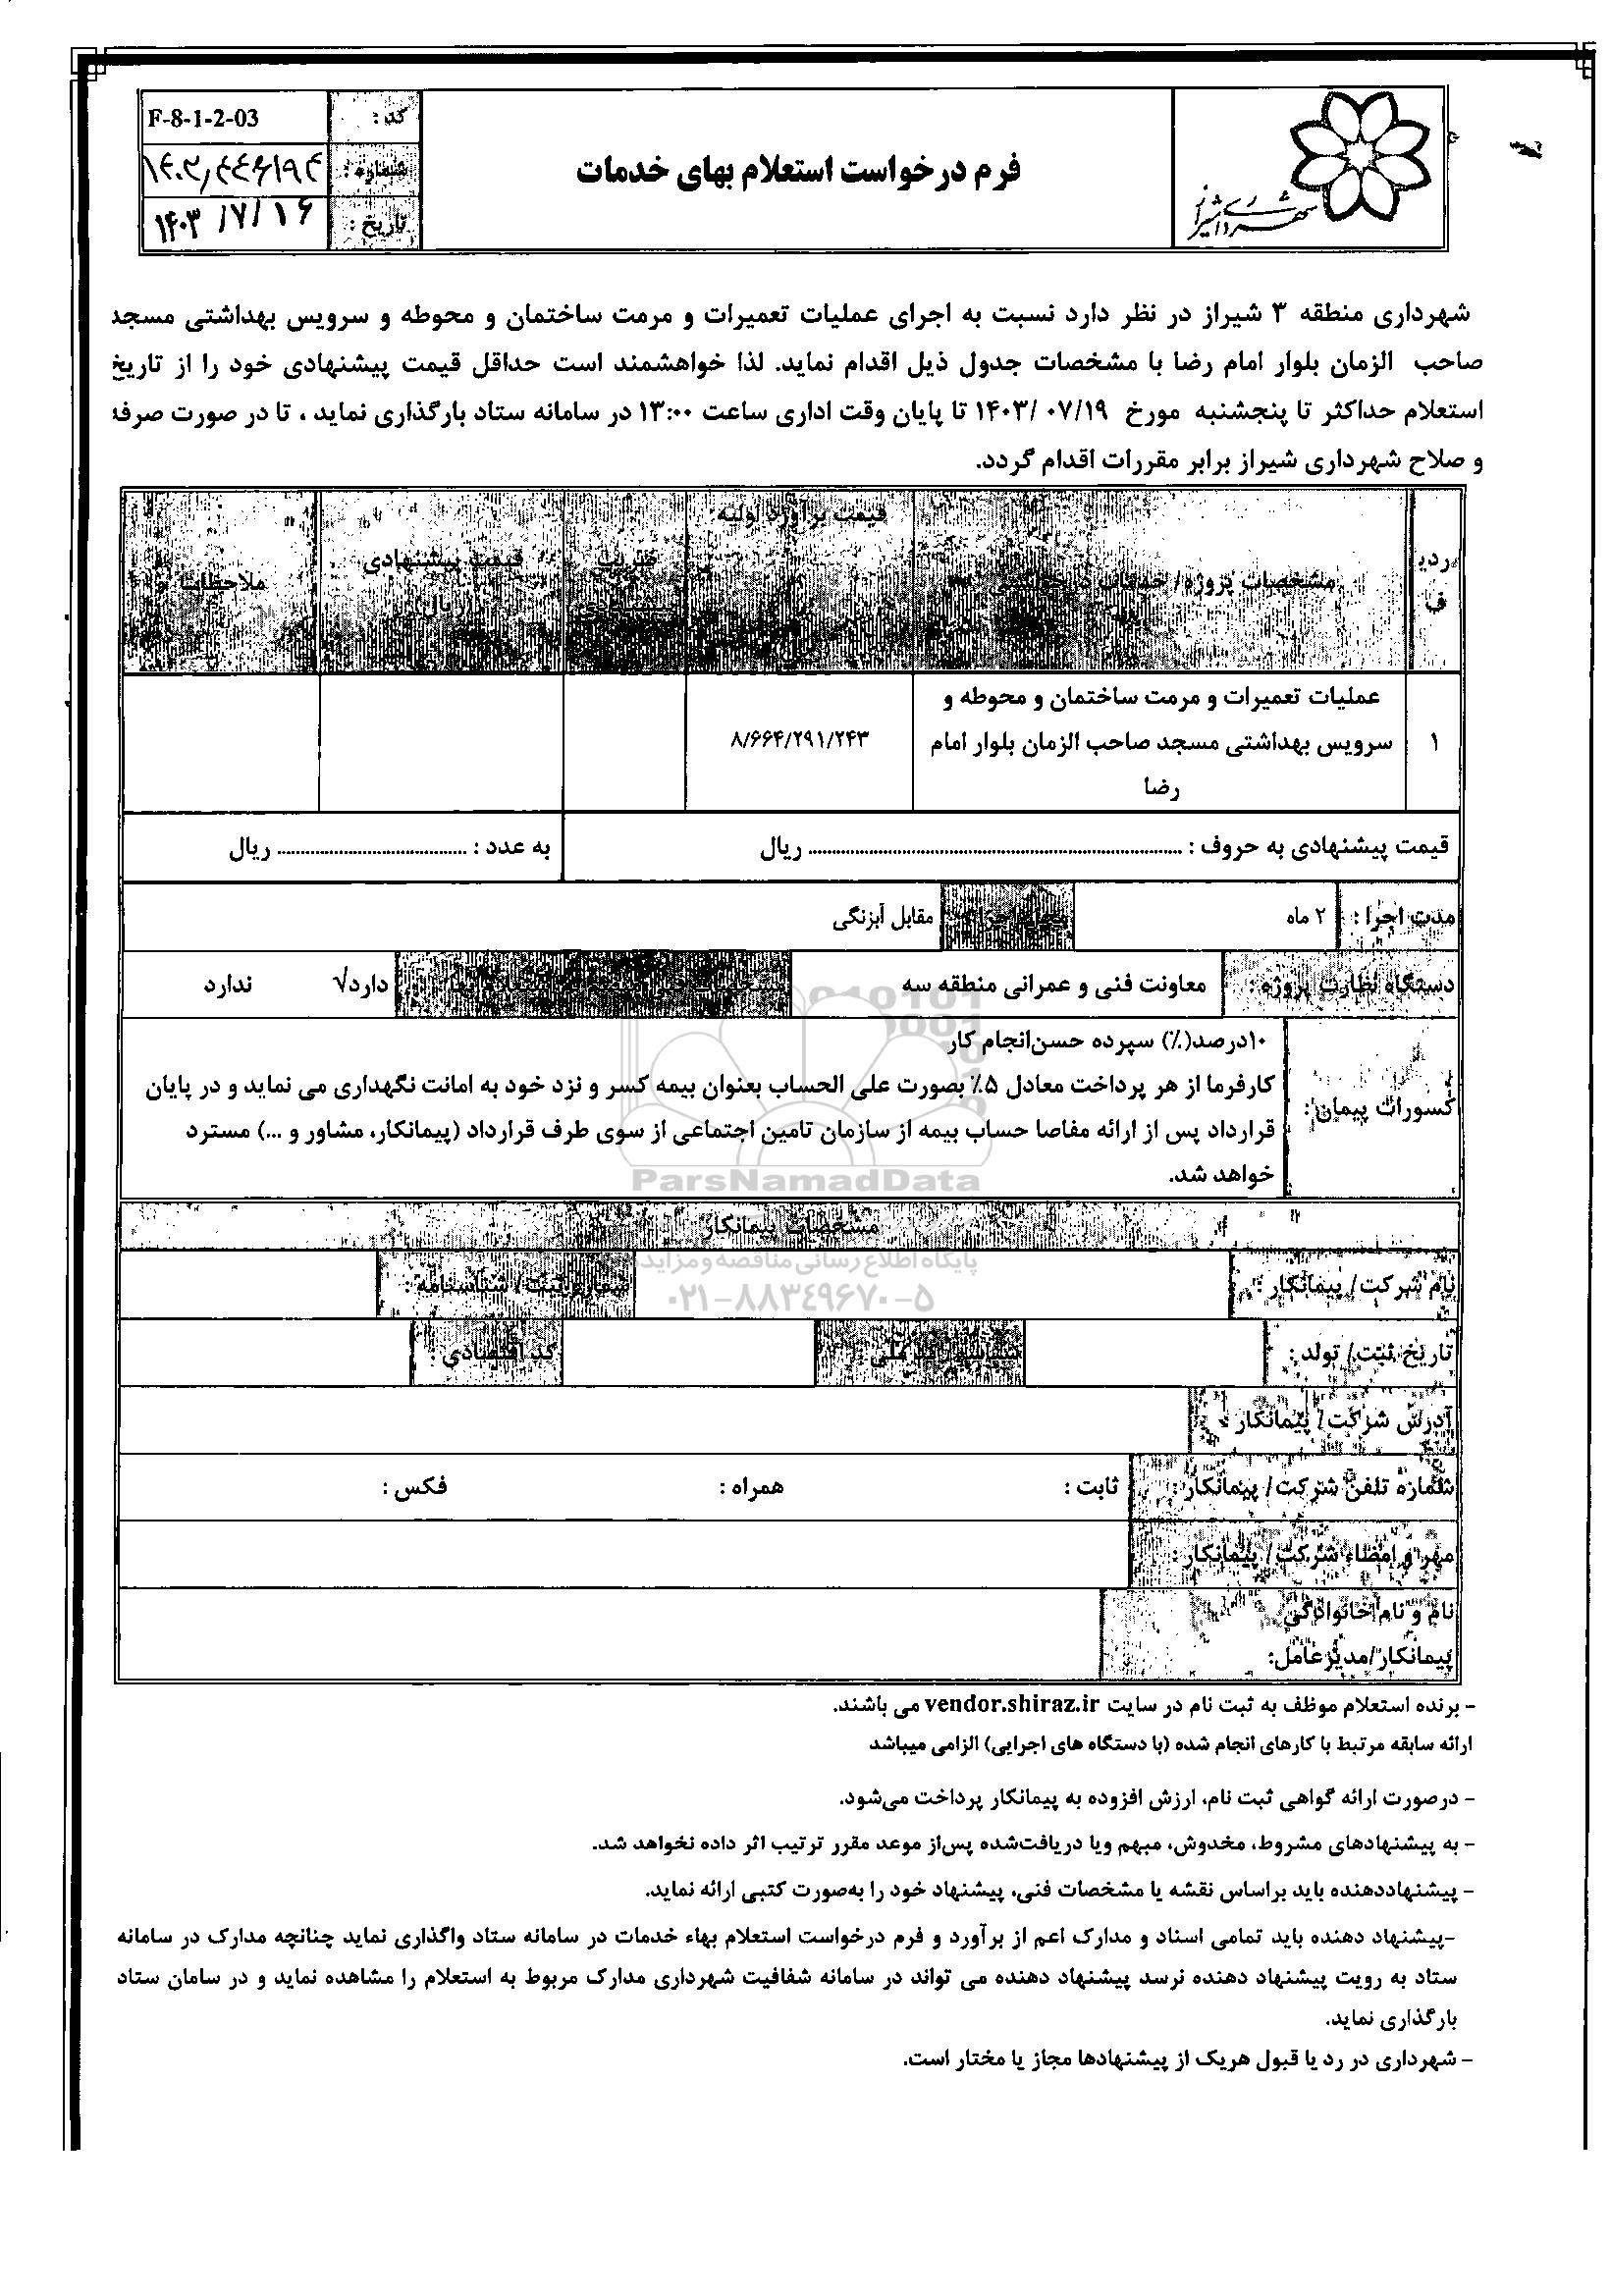 شهرداری شیراز
فرم درخواست استعلام بهای خدمات
کد : F-8-1-2-03
شماره :
تاریخ : ۱۴۰۳/۷/۱۶
شهرداری منطقه ۳ شیراز در نظر دارد نسبت به اجرای عملیات تعمیرات و مرمت ساختمان و محوطه و سرویس بهداشتی مسجد
صاحب الزمان بلوار امام رضا با مشخصات جدول ذیل اقدام نماید. لذا خواهشمند است حداقل قیمت پیشنهادی خود را از تاریخ
استعلام حداکثر تا پنجشنبه مورخ ۱۴۰۳/ ۰۷/۱۹ تا پایان وقت اداری ساعت ۱۳:۰۰ در سامانه ستاد بارگذاری نماید ، تا در صورت صرفه
و صلاح شهرداری شیراز برابر مقررات اقدام گردد.
ردیف مشخصات پروژه/ خدمات قیمت برآورد اولیه قیمت پیشنهادی (ریال) ملاحظات
۱ عملیات تعمیرات و مرمت ساختمان و محوطه و ۸/۶۶۴/۲۹۱/۲۴۳
سرویس بهداشتی مسجد صاحب الزمان بلوار امام
رضا
قیمت پیشنهادی به حروف : ........................................ ریال به عدد : ........................................ ریال
مدت اجرا : ۲ ماه محل اجرا : مقابل آبزنگی
دستگاه نظارت پروژه : معاونت فنی و عمرانی منطقه سه دارد√ ندارد
کسورات پیمان :
۱۰درصد(٪) سپرده حسن‌انجام کار
کارفرما از هر پرداخت معادل ۵٪ بصورت علی الحساب بعنوان بیمه کسر و نزد خود به امانت نگهداری می نماید و در پایان
قرارداد پس از ارائه مفاصا حساب بیمه از سازمان تامین اجتماعی از سوی طرف قرارداد (پیمانکار، مشاور و ...) مسترد
خواهد شد.
ParsNamadData
مشخصات پیمانکار
پایگاه اطلاع رسانی مناقصه و مزایده
نام شرکت/ پیمانکار : شماره ثبت/ شناسنامه :
۰۲۱-۸۸۳۴۹۶۷۰-۵
تاریخ ثبت/ تولد : کد اقتصادی :
آدرس شرکت/ پیمانکار :
شماره تلفن شرکت/ پیمانکار : ثابت : همراه : فکس :
مهر و امضاء شرکت/ پیمانکار :
نام و نام خانوادگی
پیمانکار/مدیرعامل:
- برنده استعلام موظف به ثبت نام در سایت vendor.shiraz.ir می باشند.
ارائه سابقه مرتبط با کارهای انجام شده (با دستگاه های اجرایی) الزامی میباشد
- درصورت ارائه گواهی ثبت نام، ارزش افزوده به پیمانکار پرداخت می‌شود.
- به پیشنهادهای مشروط، مخدوش، مبهم ویا دریافت‌شده پس‌از موعد مقرر ترتیب اثر داده نخواهد شد.
- پیشنهاددهنده باید براساس نقشه یا مشخصات فنی، پیشنهاد خود را به‌صورت کتبی ارائه نماید.
-پیشنهاد دهنده باید تمامی اسناد و مدارک اعم از برآورد و فرم درخواست استعلام بهاء خدمات در سامانه ستاد واگذاری نماید چنانچه مدارک در سامانه
ستاد به رویت پیشنهاد دهنده نرسد پیشنهاد دهنده می تواند در سامانه شفافیت شهرداری مدارک مربوط به استعلام را مشاهده نماید و در سامان ستاد
بارگذاری نماید.
- شهرداری در رد یا قبول هریک از پیشنهادها مجاز یا مختار است.